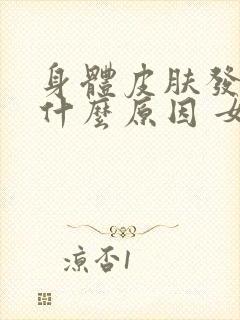 身體皮肤發
什麼原因 女
凉否1